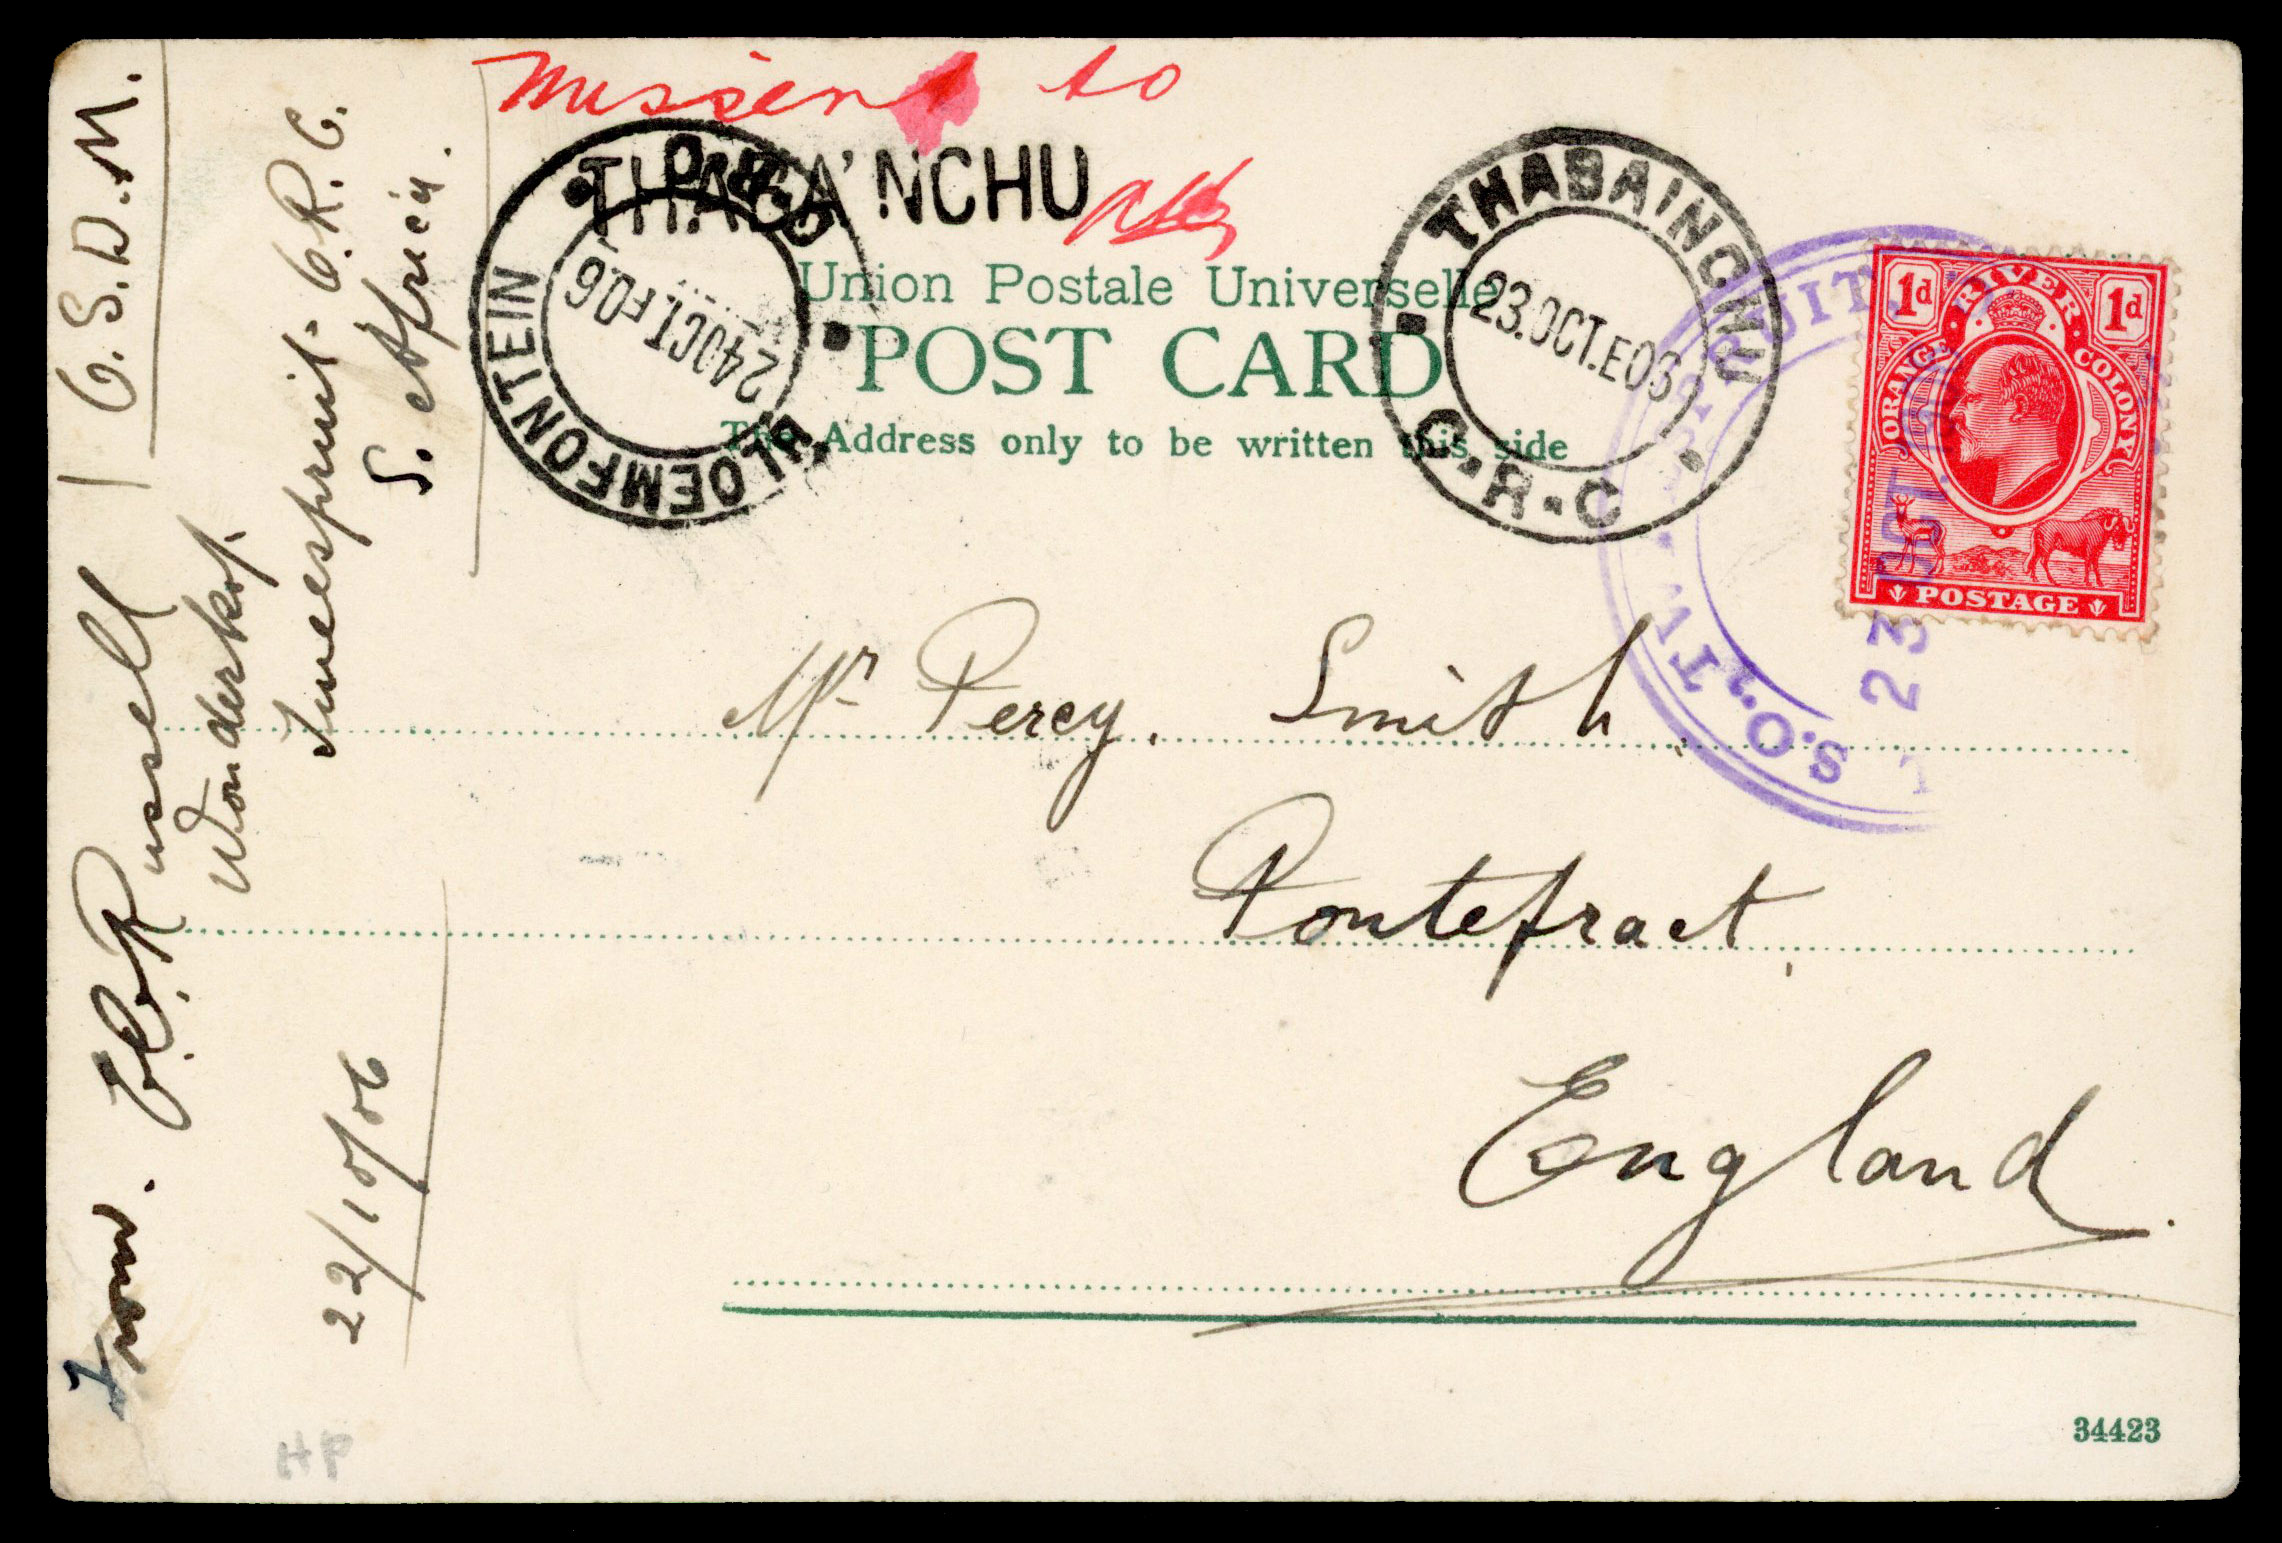 Missent to
THABA'NCHU
O.R.C.
BLOEMFONTEIN
24OCT.F06
THABA'NCHU
23.OCT.E06
O.R.C
Union Postale Universelle
POST CARD
The Address only to be written this side
ORANGE RIVER COLONY
1d 1d
POSTAGE
S.O.
23 OCT.
Mr Percy. Smith.
Pontefract,
England.
From. C.C. Russell | C.S.D.M.
Wonderkop.
Tweespruit. O.R.C.
S. Africa.
22/10/06
HP
34423